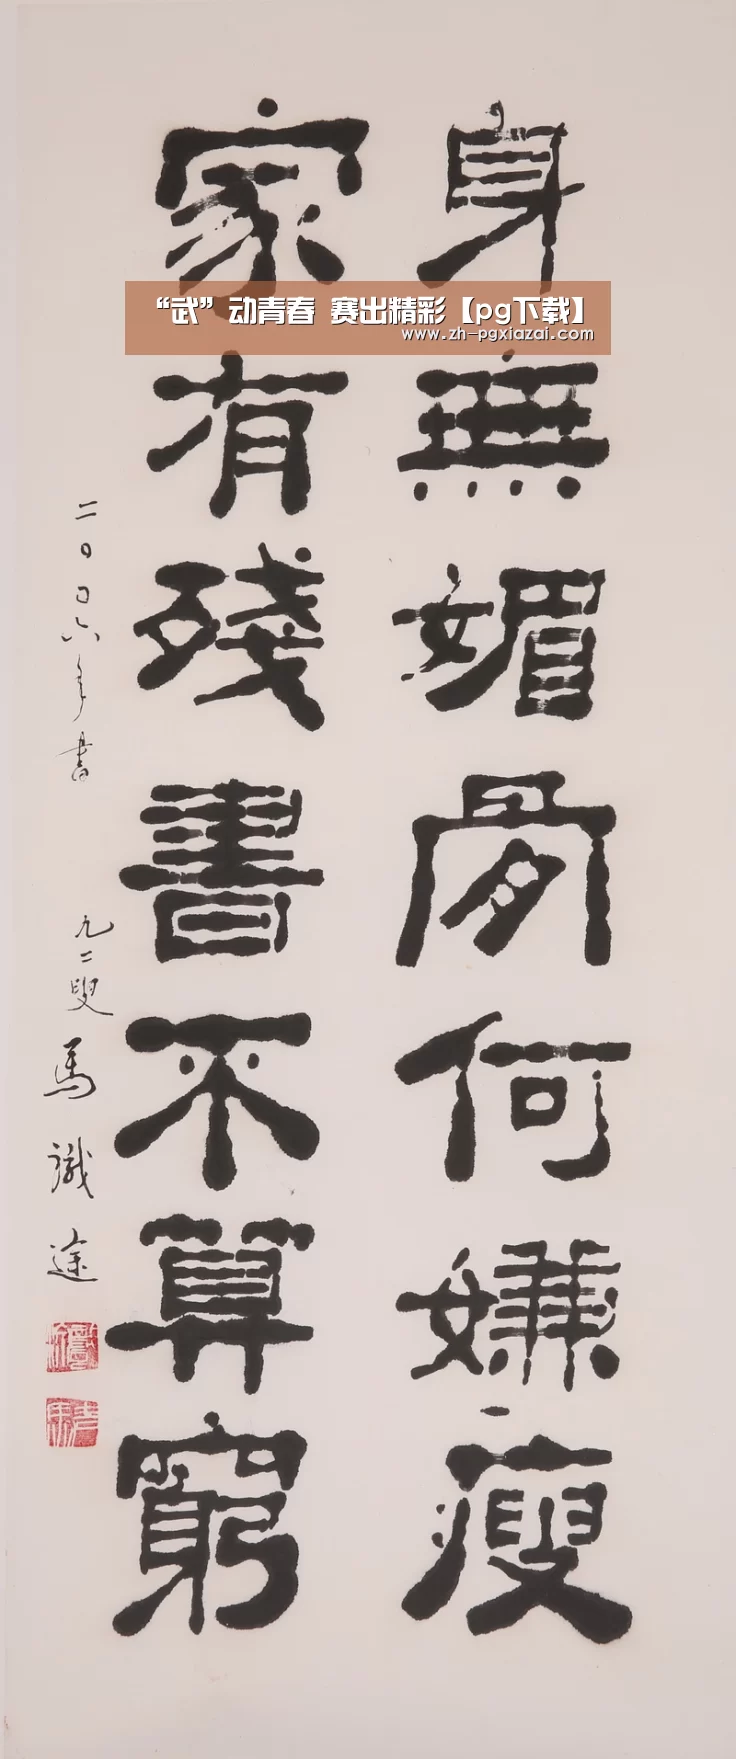 身無媚骨何嫌瘦
家有殘書不算窮
二〇〇六年書 九二叟 馬識途
“武”动青春 赛出精彩【pg下载】
www.zh-pgxiazai.com